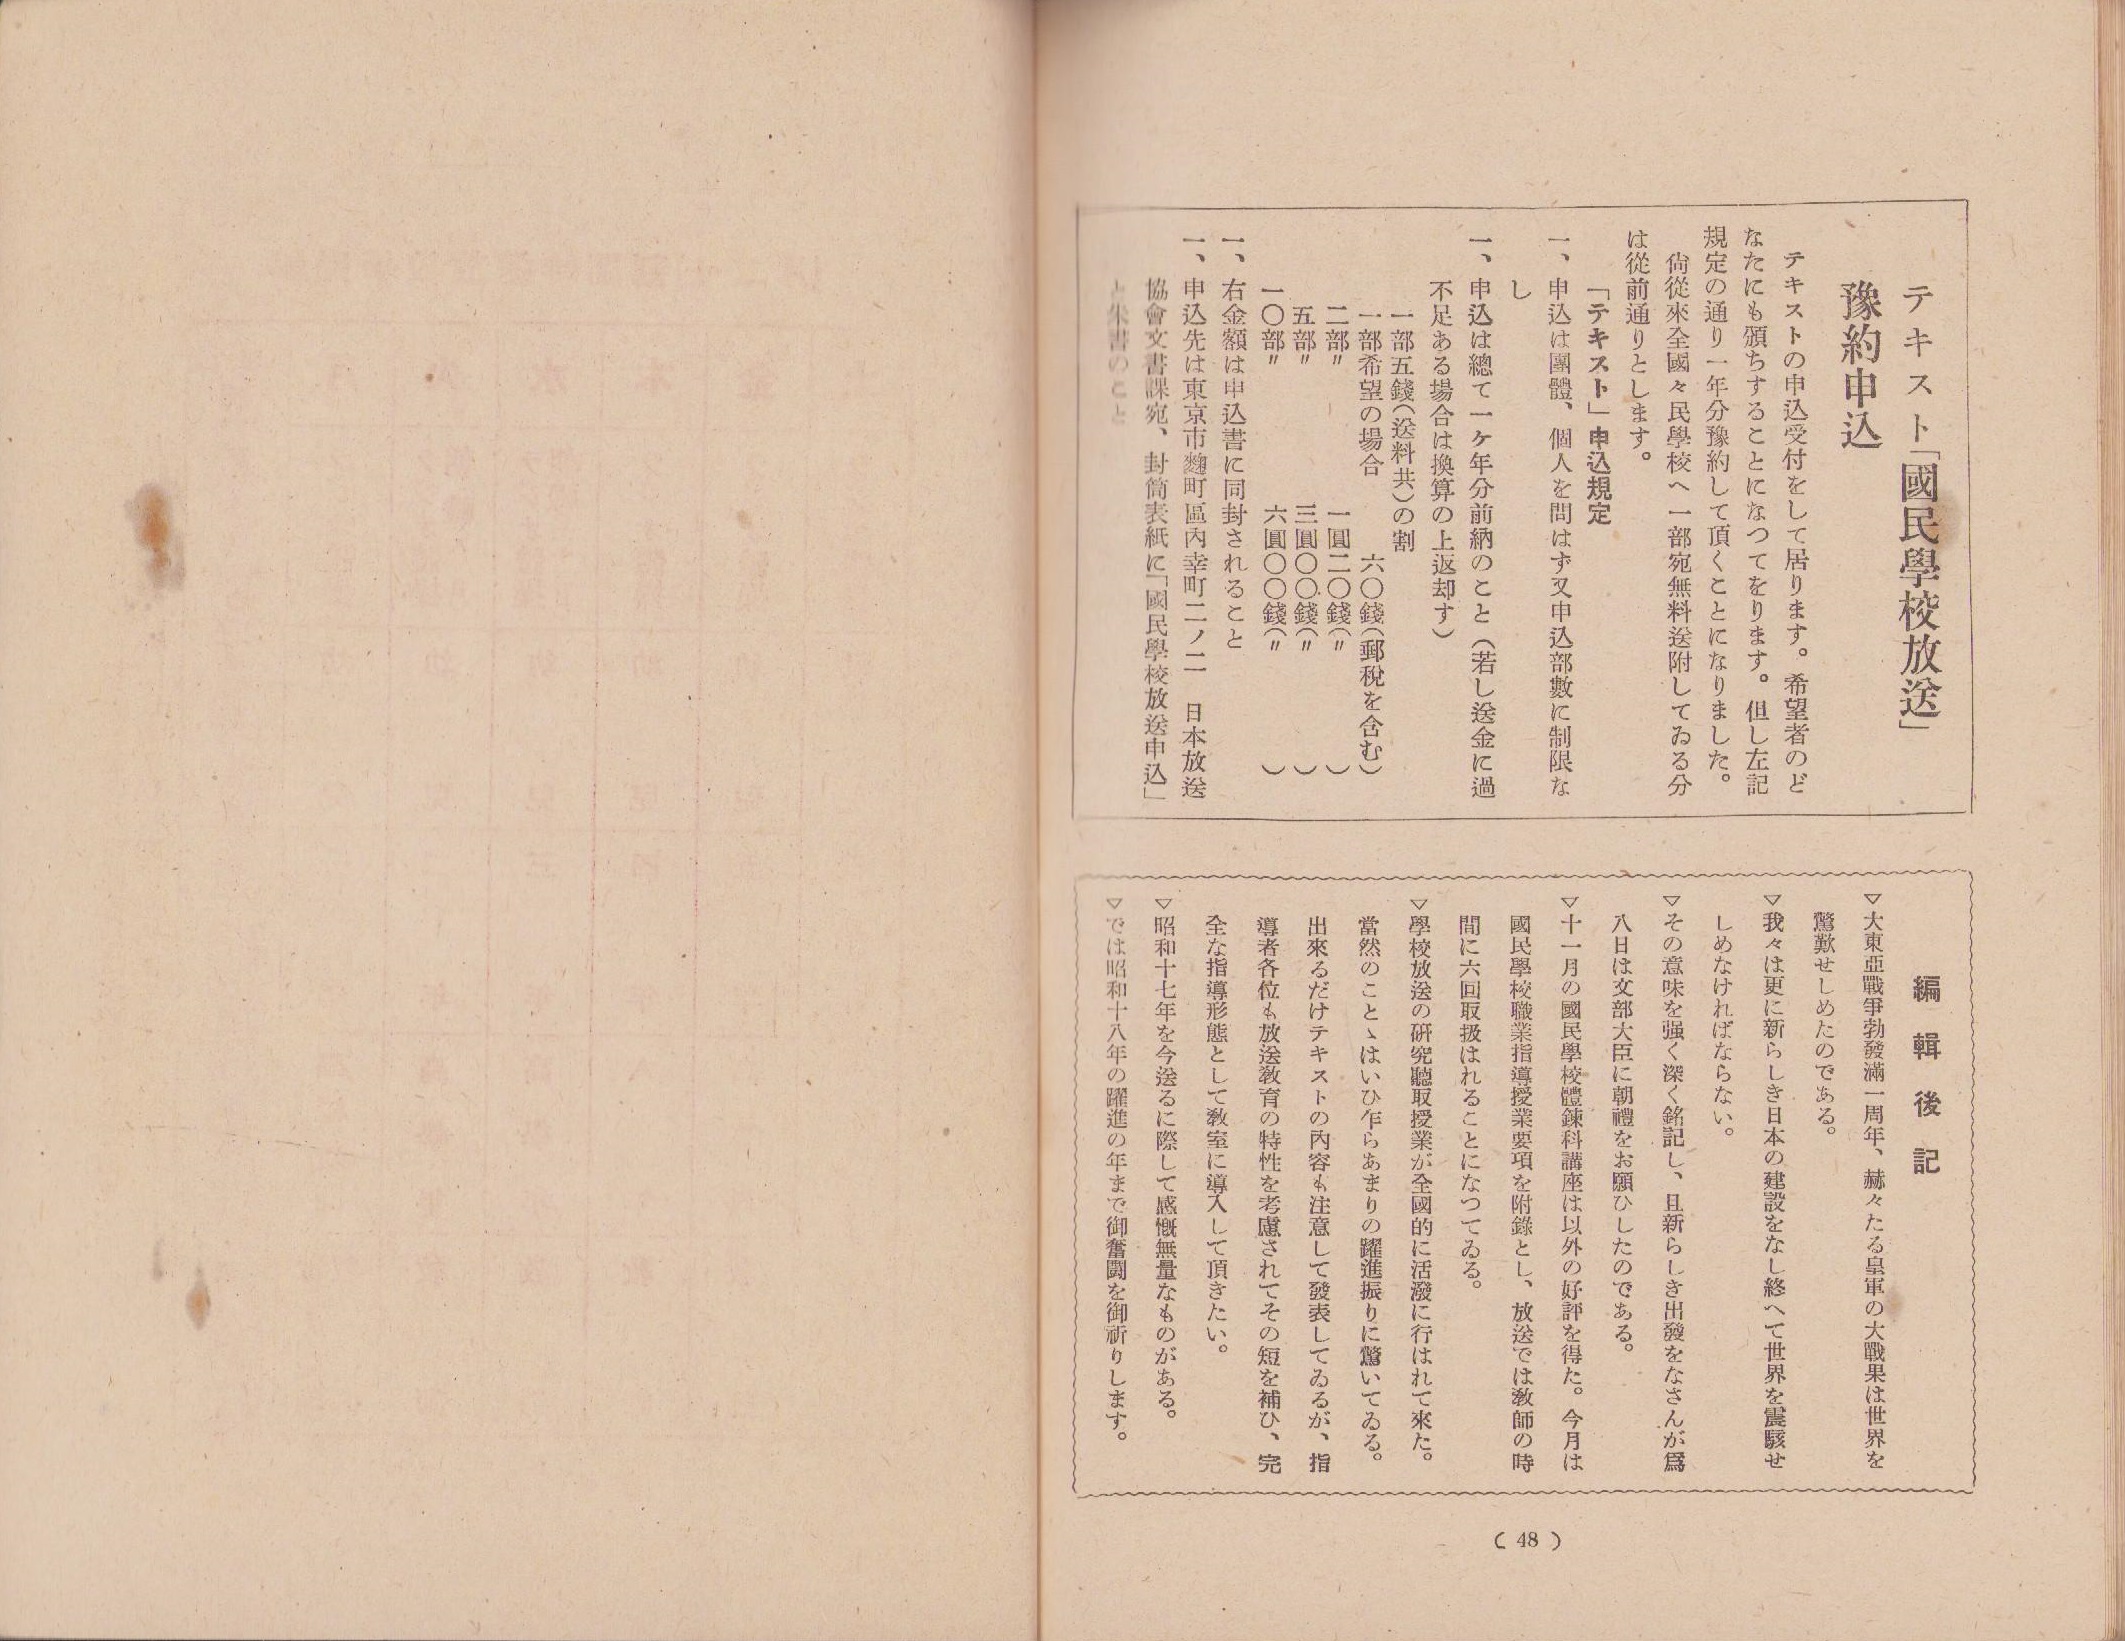 テキスト「國民學校放送」
豫約申込
テキストの申込受付をして居ります。希望者のど
なたにも頒ちすることになつてをります。但し左記
規定の通り一年分豫約して頂くことになりました。
尙從來全國々民學校へ一部宛無料送附してゐる分
は從前通りとします。
「テキスト」申込規定
一、申込は團體、個人を問はず又申込部數に制限な
し
一、申込は總て一ケ年分前納のこと（若し送金に過
不足ある場合は換算の上返却す）
一部五錢（送料共）の割
一部希望の場合　六〇錢（郵稅を含む）
二部〃　一圓二〇錢（〃　）
五部〃　三圓〇〇錢（〃　）
一〇部〃　六圓〇〇錢（〃　）
一、右金額は申込書に同封されること
一、申込先は東京市麴町區內幸町二ノ二　日本放送
協會文書課宛、封筒表紙に「國民學校放送申込」
と朱書のこと
編輯後記
▽大東亞戰爭勃發滿一周年、赫々たる皇軍の大戰果は世界を
驚歎せしめたのである。
▽我々は更に新らしき日本の建設をなし終へて世界を震駭せ
しめなければならない。
▽その意味を强く深く銘記し、且新らしき出發をなさんが爲
八日は文部大臣に朝禮をお願ひしたのである。
▽十一月の國民學校體鍊科講座は以外の好評を得た。今月は
國民學校職業指導授業要項を附錄とし、放送では敎師の時
間に六回取扱はれることになつてゐる。
▽學校放送の硏究聽取授業が全國的に活潑に行はれて來た。
當然のことゝはいひ乍らあまりの躍進振りに驚いてゐる。
出來るだけテキストの內容も注意して發表してゐるが、指
導者各位も放送敎育の特性を考慮されてその短を補ひ、完
全な指導形態として敎室に導入して頂きたい。
▽昭和十七年を今送るに際して感慨無量なものがある。
▽では昭和十八年の躍進の年まで御奮鬪を御祈りします。
( 48 )